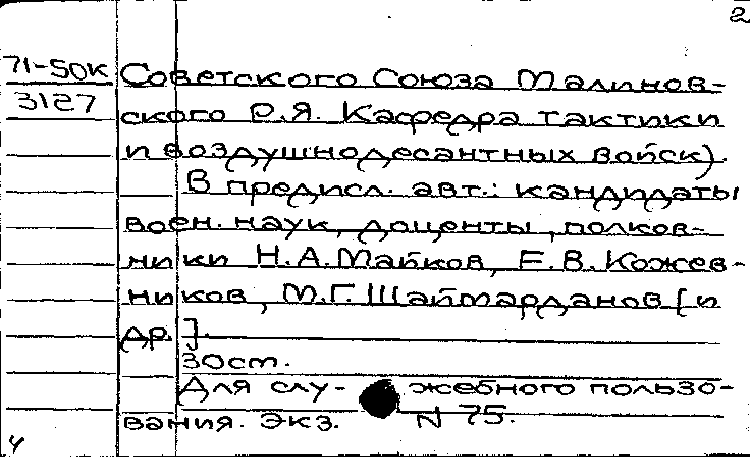 2
71-50К
3127
Советского Союза Малинов-
ского Р.Я. Кафедра тактики
и воздушнодесантных войск).
В предисл. авт.: кандидаты
воен. наук, доценты, полков-
ники Н.А.Майков, Е.В.Кожев-
ников, М.Г.Шаймарданов [и
др.].
30ст.
Для слу- жебного пользо-
вания. Экз. N 75.